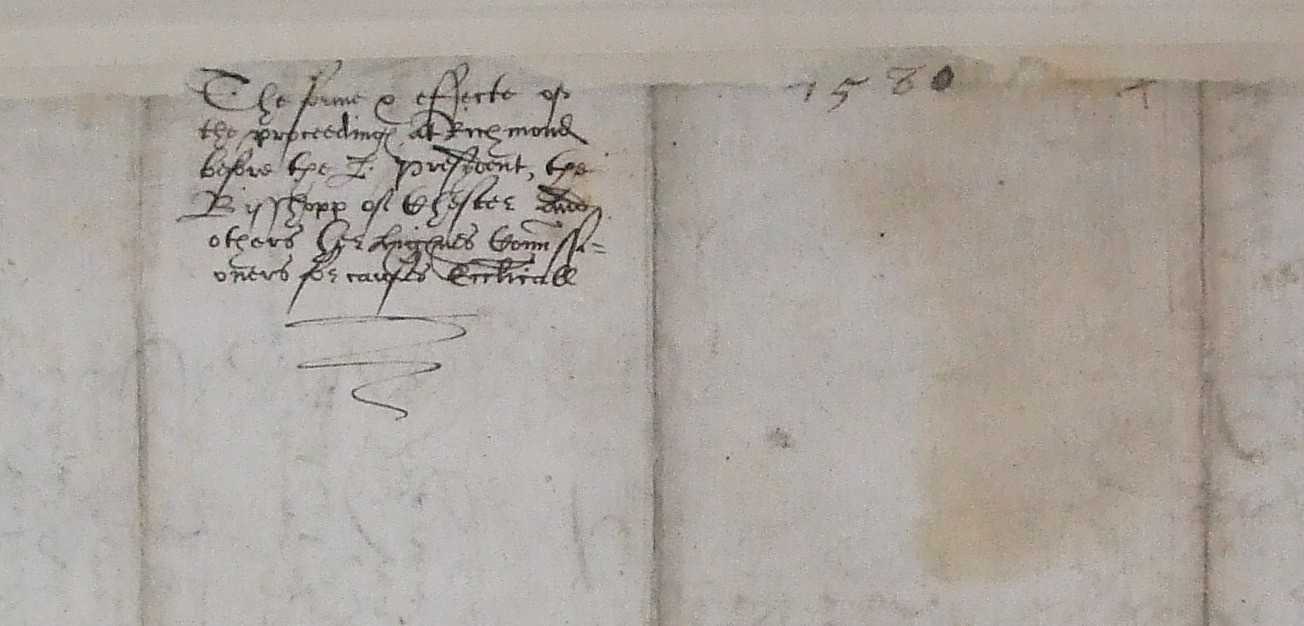 The forme & effecte of
the proceedinges at Richmond
before the L. president, the
Bysshopp of Chester and
others her highnes Commissi=
oners for causes Eccl'icall
1580